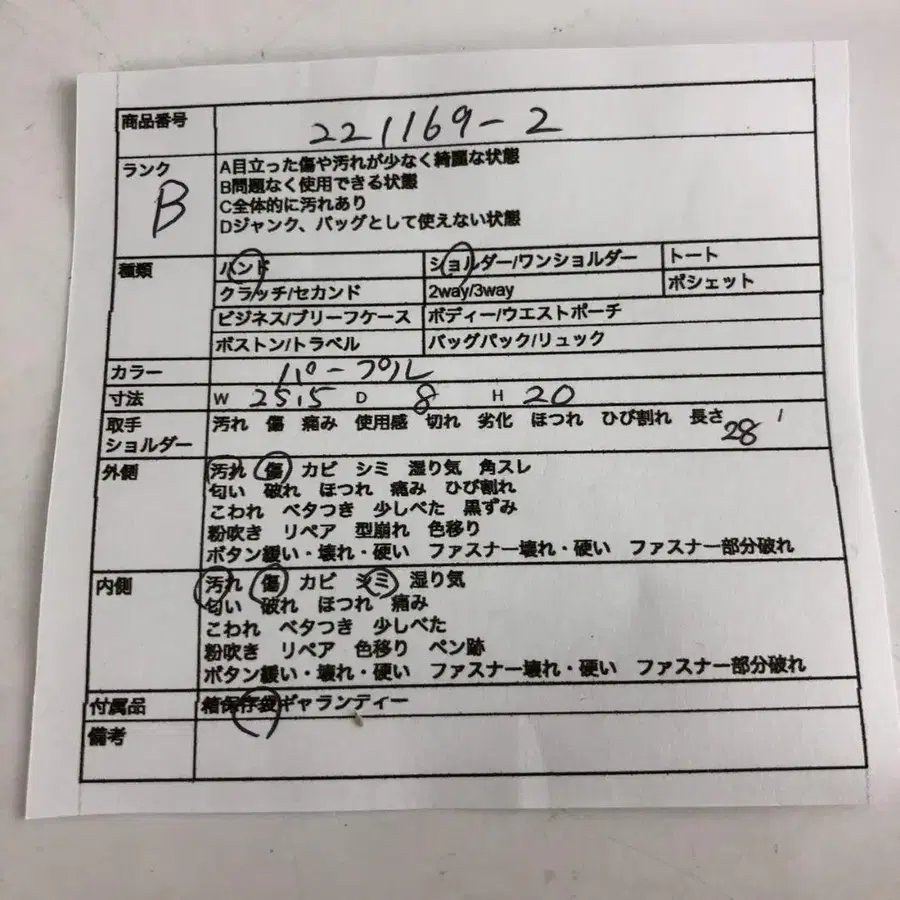 商品番号 221169-2
ランク B
A目立った傷や汚れが少なく綺麗な状態
B問題なく使用できる状態
C全体的に汚れあり
Dジャンク、バッグとして使えない状態
種類 ハンド ショルダー/ワンショルダー トート
クラッチ/セカンド 2way/3way ポシェット
ビジネス/ブリーフケース ボディー/ウエストポーチ
ボストン/トラベル バッグパック/リュック
カラー パープル
寸法 W 25.5 D 8 H 20
取手 汚れ 傷 痛み 使用感 切れ 劣化 ほつれ ひび割れ 長さ 28 /
ショルダー
外側 汚れ 傷 カビ シミ 湿り気 角スレ
匂い 破れ ほつれ 痛み ひび割れ
こわれ ベタつき 少しべた 黒ずみ
粉吹き リペア 型崩れ 色移り
ボタン緩い・壊れ・硬い ファスナー壊れ・硬い ファスナー部分破れ
内側 汚れ 傷 カビ シミ 湿り気
匂い 破れ ほつれ 痛み
こわれ ベタつき 少しべた
粉吹き リペア 色移り ペン跡
ボタン緩い・壊れ・硬い ファスナー壊れ・硬い ファスナー部分破れ
付属品 箱保存袋ギャランティー
備考